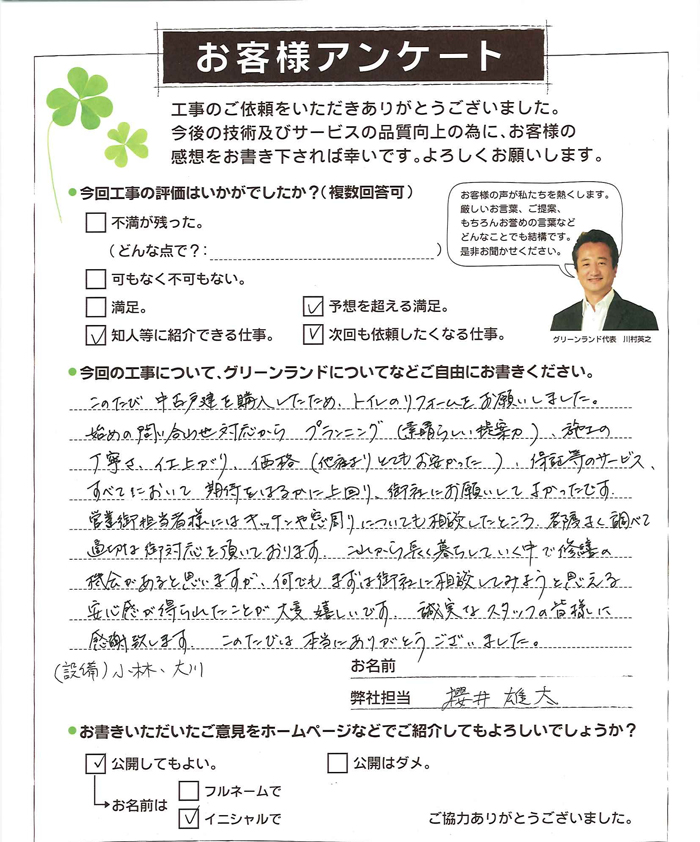 お客様アンケート
工事のご依頼をいただきありがとうございました。
今後の技術及びサービスの品質向上の為に、お客様の
感想をお書き下されば幸いです。よろしくお願いします。
●今回工事の評価はいかがでしたか?(複数回答可)
不満が残った。
(どんな点で?: )
可もなく不可もない。
満足。
✓予想を超える満足。
✓知人等に紹介できる仕事。
✓次回も依頼したくなる仕事。
お客様の声が私たちを熱くします。
厳しいお言葉、ご提案、
もちろんお誉めの言葉など
どんなことでも結構です。
是非お聞かせください。
グリーンランド代表 川村英之
●今回の工事について、グリーンランドについてなどご自由にお書きください。
このたび 中古戸建を購入したため、トイレのリフォームをお願いしました。
始めの問い合わせ対応から プランニング(素晴らしい提案力)、施工の
丁寧さ、仕上がり、価格(他社よりとてもお安かった)、保証等のサービス、
すべてにおいて 期待をはるかに上回り、御社にお願いして よかったです.
営業御担当者様にはキッチンや窓周りについても相談したところ、都度よく調べて
適切な御対応を頂いております. これから長く暮らしていく中で修繕の
機会があると思いますが、何でも まずは御社に相談してみようと思える
安心感が得られたことが大変嬉しいです. 誠実な スタッフの皆様に
感謝致します. このたびは 本当にありがとうございました。
(設備)小林、大川
お名前
弊社担当 櫻井 雄太
●お書きいただいたご意見をホームページなどでご紹介してもよろしいでしょうか?
✓公開してもよい。
公開はダメ。
→お名前は
フルネームで
✓イニシャルで
ご協力ありがとうございました。